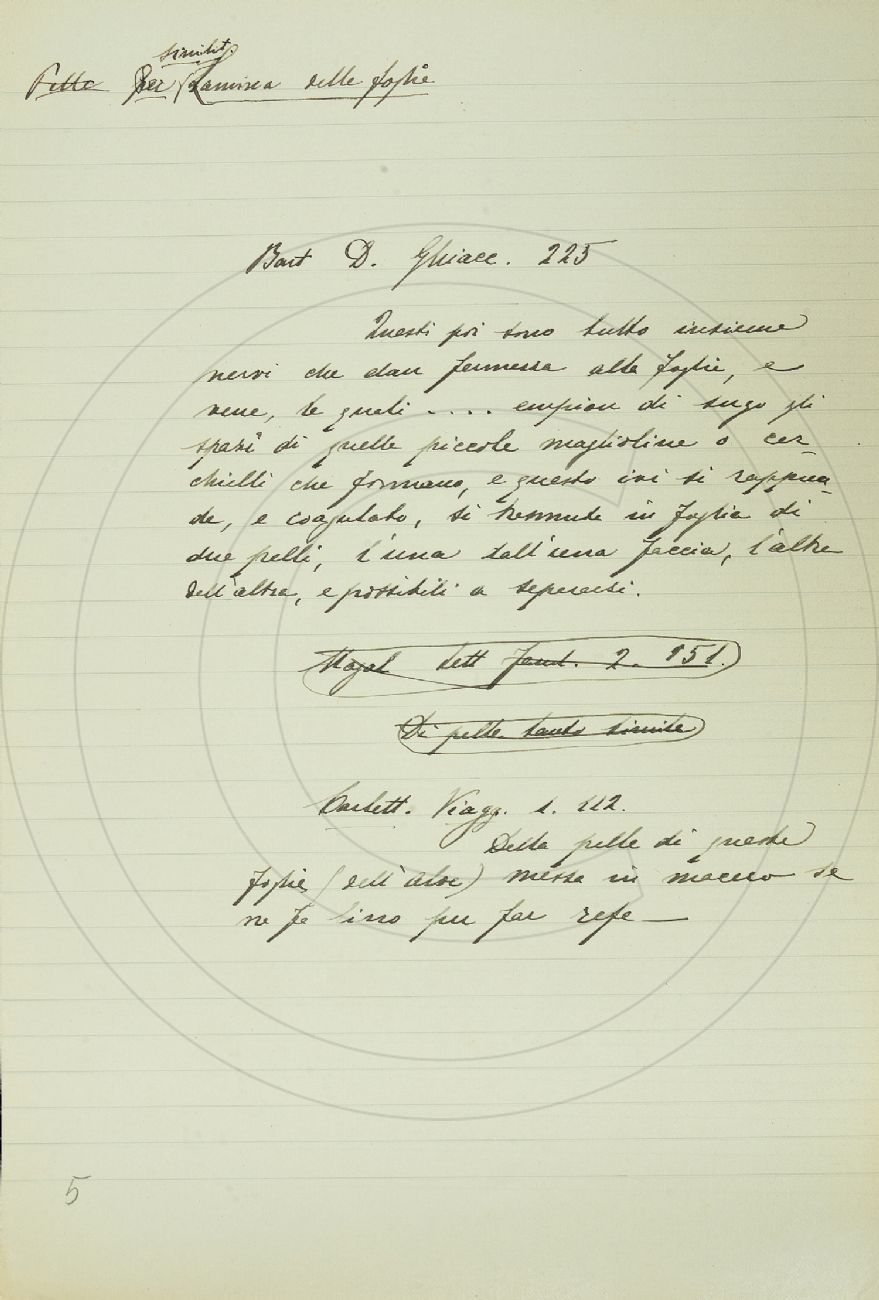 Pelle Per Lamina delle foglie
similit.
Bart D. Ghiacc. 225
Questi poi sono tutto insieme
nervi che dan fermezza alle foglie, e
vene, le quali .... empion di sugo gli
spazî di quelle piccole maglioline o cer-
chielli che formano, e questo ivi si rappren-
de, e coagulato, si tramuta in foglia di
due pelli, l'una dall'una faccia, l'altra
dall'altra, e possibili a separarsi.
Magal lett 2. 151.
Di pelle tanto simile
Carlett. Viagg. 1. 112.
Della pelle di queste
foglie (dell'aloe) messa in macero se
ne fa lino per far refe —
5